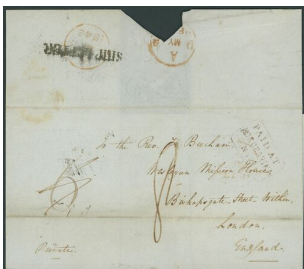 SHIP LETTER
A
MY
PAID AT
To the Rev. J. Beecham
Wesleyan Mission House
8
Bishopsgate Street Within
London.
England.
Private